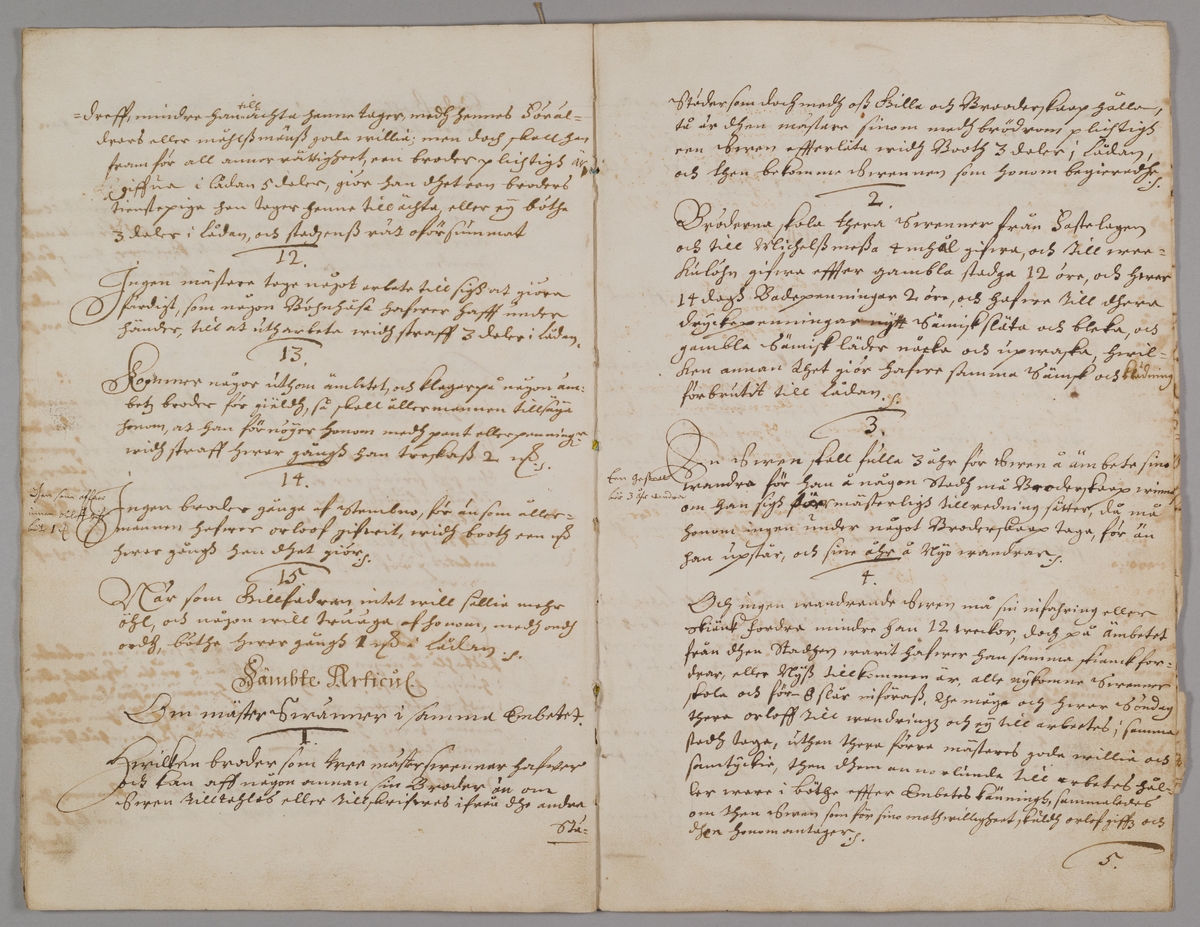 =dreff, mindre han till ächta henne tager, medh hennes Föräl=
drars eller måhlßmanß gode willie; men doch skall han
fram för all annor rättigheet, een broder plichtigh
giffua i lådan 5 daler, giör han dhet een broders
tienstepiga han tager henne till ächta, eller eij böthe
3 daler i lådan, och stadzenß rät oförsummat
12.
Ingen mästere tage något arbete till sigh at giöra
färdigt, som någon Böhnhåsa hafwer hafft under
händer, till at uthärbeta widh straff 3 daler i Lådan.
13.
Kommer någor uthom ämbetet, och klagar på någon äm=
betz broder för giäldh, så skall ållermannen tillsäija
honom, at han förnöijer honom medh pant eller penningar
widh straff hwar gångh han treskaß 2
14.
Ingen broder gånge af Stembno, för än som åller=
mannen hafwer orloof gifwit, widh booth een
hwar gångh han dhet giör
15.
När som Gillfadren intet will sällie mehr
öhl, och någon will truuga af honom, medh
ordh, böthe hwar gångh 1 i Lådan
Fämbte Articul
Om mäster Swänner i samma Embetet.
1.
Hwilken broder som twee mästerswenner hafwer
och kan aff någon annan sin Broder än om
Swen tilltahlas eller tillskrifwes ifrån dhe andra
Stä=
Städer som doch medh oß Gille och Brooderskaap hålla,
tå är dhen mästare sinom medh brödrom plichtigh
een Swen efferlåta widh Booth 3 daler i Lådan,
och then bekomme Swennen som honom begierede
2.
Bröderna skola thera Swenner från Fastelagen
och till Michelßmeßa 4 måhl gifwa, och till wee=
kulöhn gifwa effter gambla stadga 12 öre, och hwar
14 dagh Badepenningar 2 öre, och hafwe till dhera
dryckepenningar nytt Sämisk släta och bleka, och
gambla Sämisk läder och upwaska, hwil=
ken annan thet giör hafwe samma Sämsk och
förbrutit till Lådan
3.
En Swen skall fulla 3 åhr för Swen å ämbete sino
wandra för han å någon stadh må Brooderskaap winna
om han sigh för mästerligh tillredning sätter, då må
honom ingen under något Brooderskaap tage, för än
han upstår, och sine åhr å Nyo wandrar
Een gesell
för 3 åhr wandra
4.
Och ingen wandrande Swen må sin infahring eller
skiänk fordra mindre han 12 weckor, doch på ämbetet
från dhen Stadhen warit hafwer han samma skienck for=
drar, eller Nyß tillkommen är, alle nykomne Swenner
skola och för Ståår införaß, the måge och hwar Söndag
there orloff till wandringh och eij till arbetes i samma
stadh tage, uthan there förre mästeres gode willie och
samtyckie, then dhem annorlunda till arbetes häl=
ler ware i böthe effter Embetes känningh, sammaledes
om then Swen som för sino mothwillogheet skuldh orlof giffs och
dhen honom antager
5.